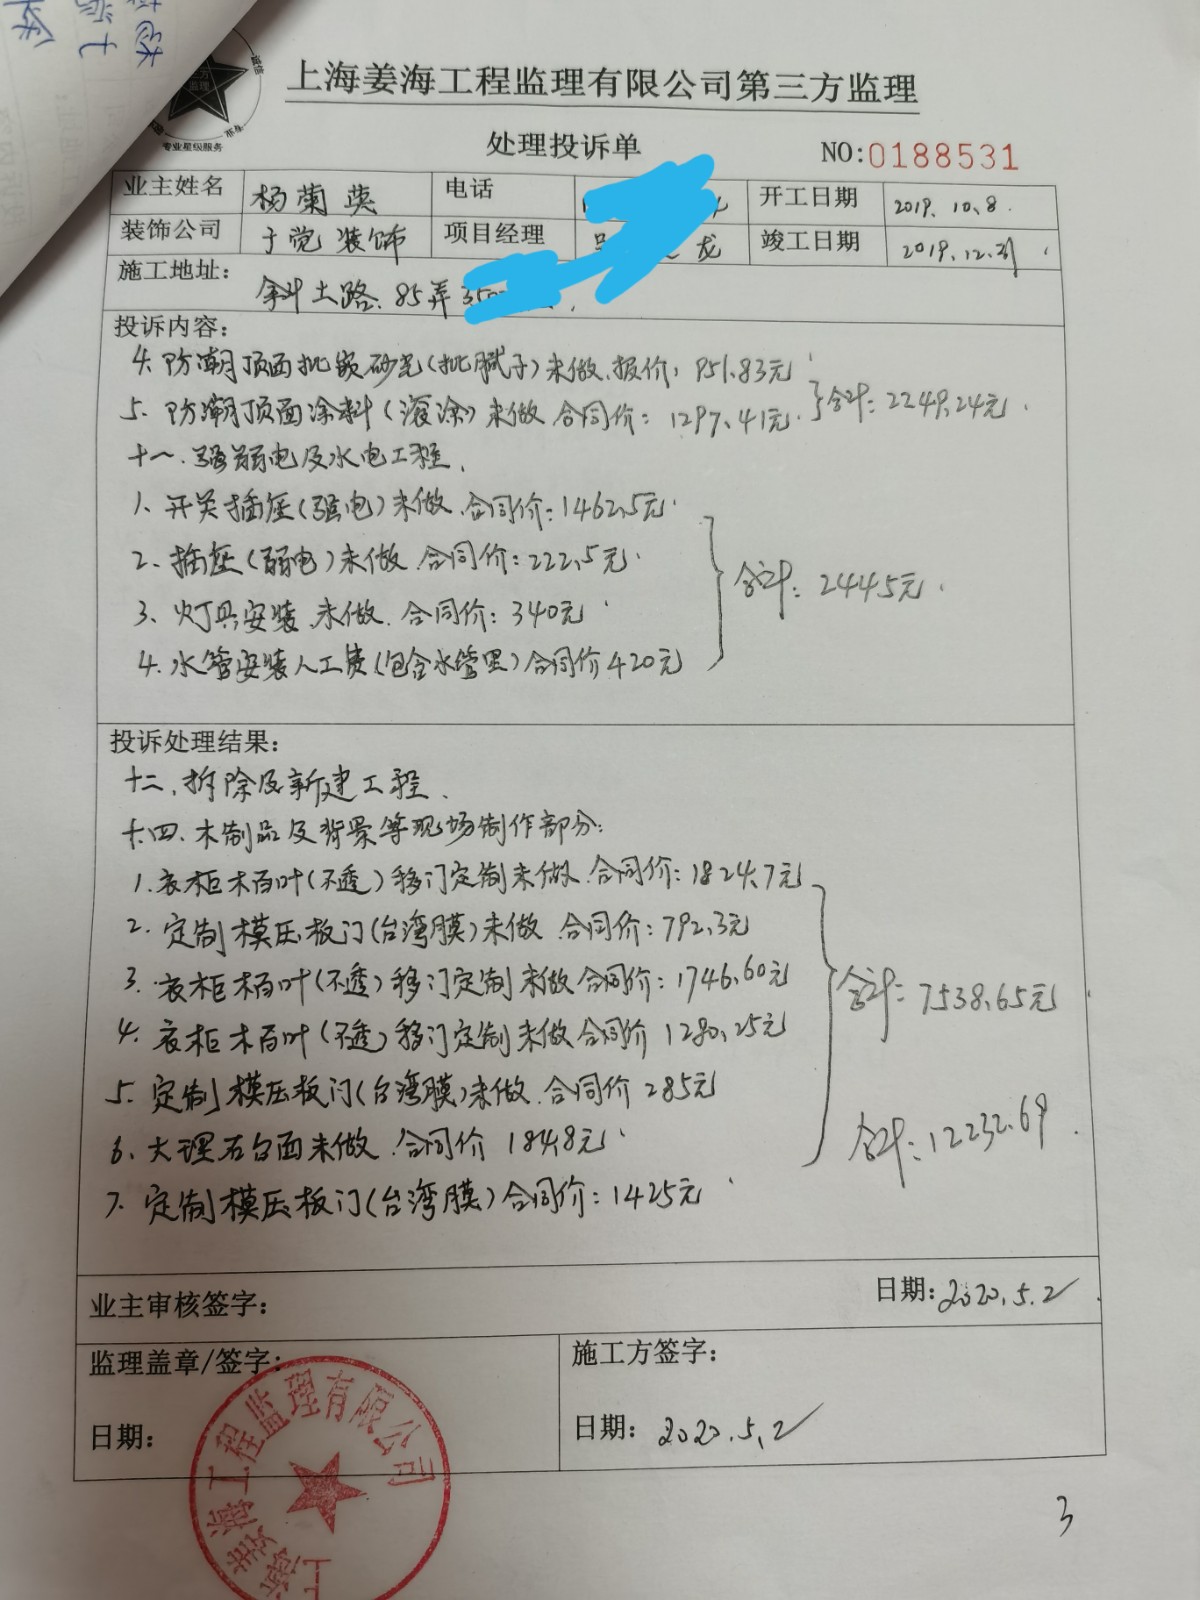 上海姜海工程监理有限公司第三方监理
专业星级服务
处理投诉单
NO:0188531
业主姓名 杨菊英 电话 开工日期 2019.10.8.
装饰公司 于觉装饰 项目经理 龙 竣工日期 2019.12.31
施工地址: 斜土路.85弄
投诉内容:
4. 防潮顶面批嵌砂光(批腻子)未做.报价: 951.83元
5. 防潮顶面涂料(滚涂)未做 合同价: 1297.41元. 合计: 2249.24元.
十一.强弱电及水电工程.
1. 开关插座(强电)未做.合同价:1462.5元.
2. 插座(弱电)未做.合同价:222.5元.
3. 灯具安装.未做.合同价:340元
4. 水管安装人工费(包含水管里)合同价420元
合计: 2445元.
投诉处理结果:
十二.拆除及新建工程.
十四.木制品及背景等现场制作部分:
1.衣柜木百叶(不透)移门定制未做.合同价:1824.7元
2. 定制模压板门(台湾膜)未做 合同价:792.3元
3. 衣柜木百叶(不透)移门定制未做合同价:1746.60元
合计: 7538.65元
4. 衣柜木百叶(不透)移门定制未做合同价 1280.25元
5. 定制模压板门(台湾膜)未做.合同价 285元
6. 大理石台面未做.合同价 184.8元
合计:12232.69.
7. 定制模压板门(台湾膜)合同价:1425元
业主审核签字: 日期:2020.5.2
监理盖章/签字: 施工方签字:
日期: 日期: 2020.5.2
上海姜海工程监理有限公司
3